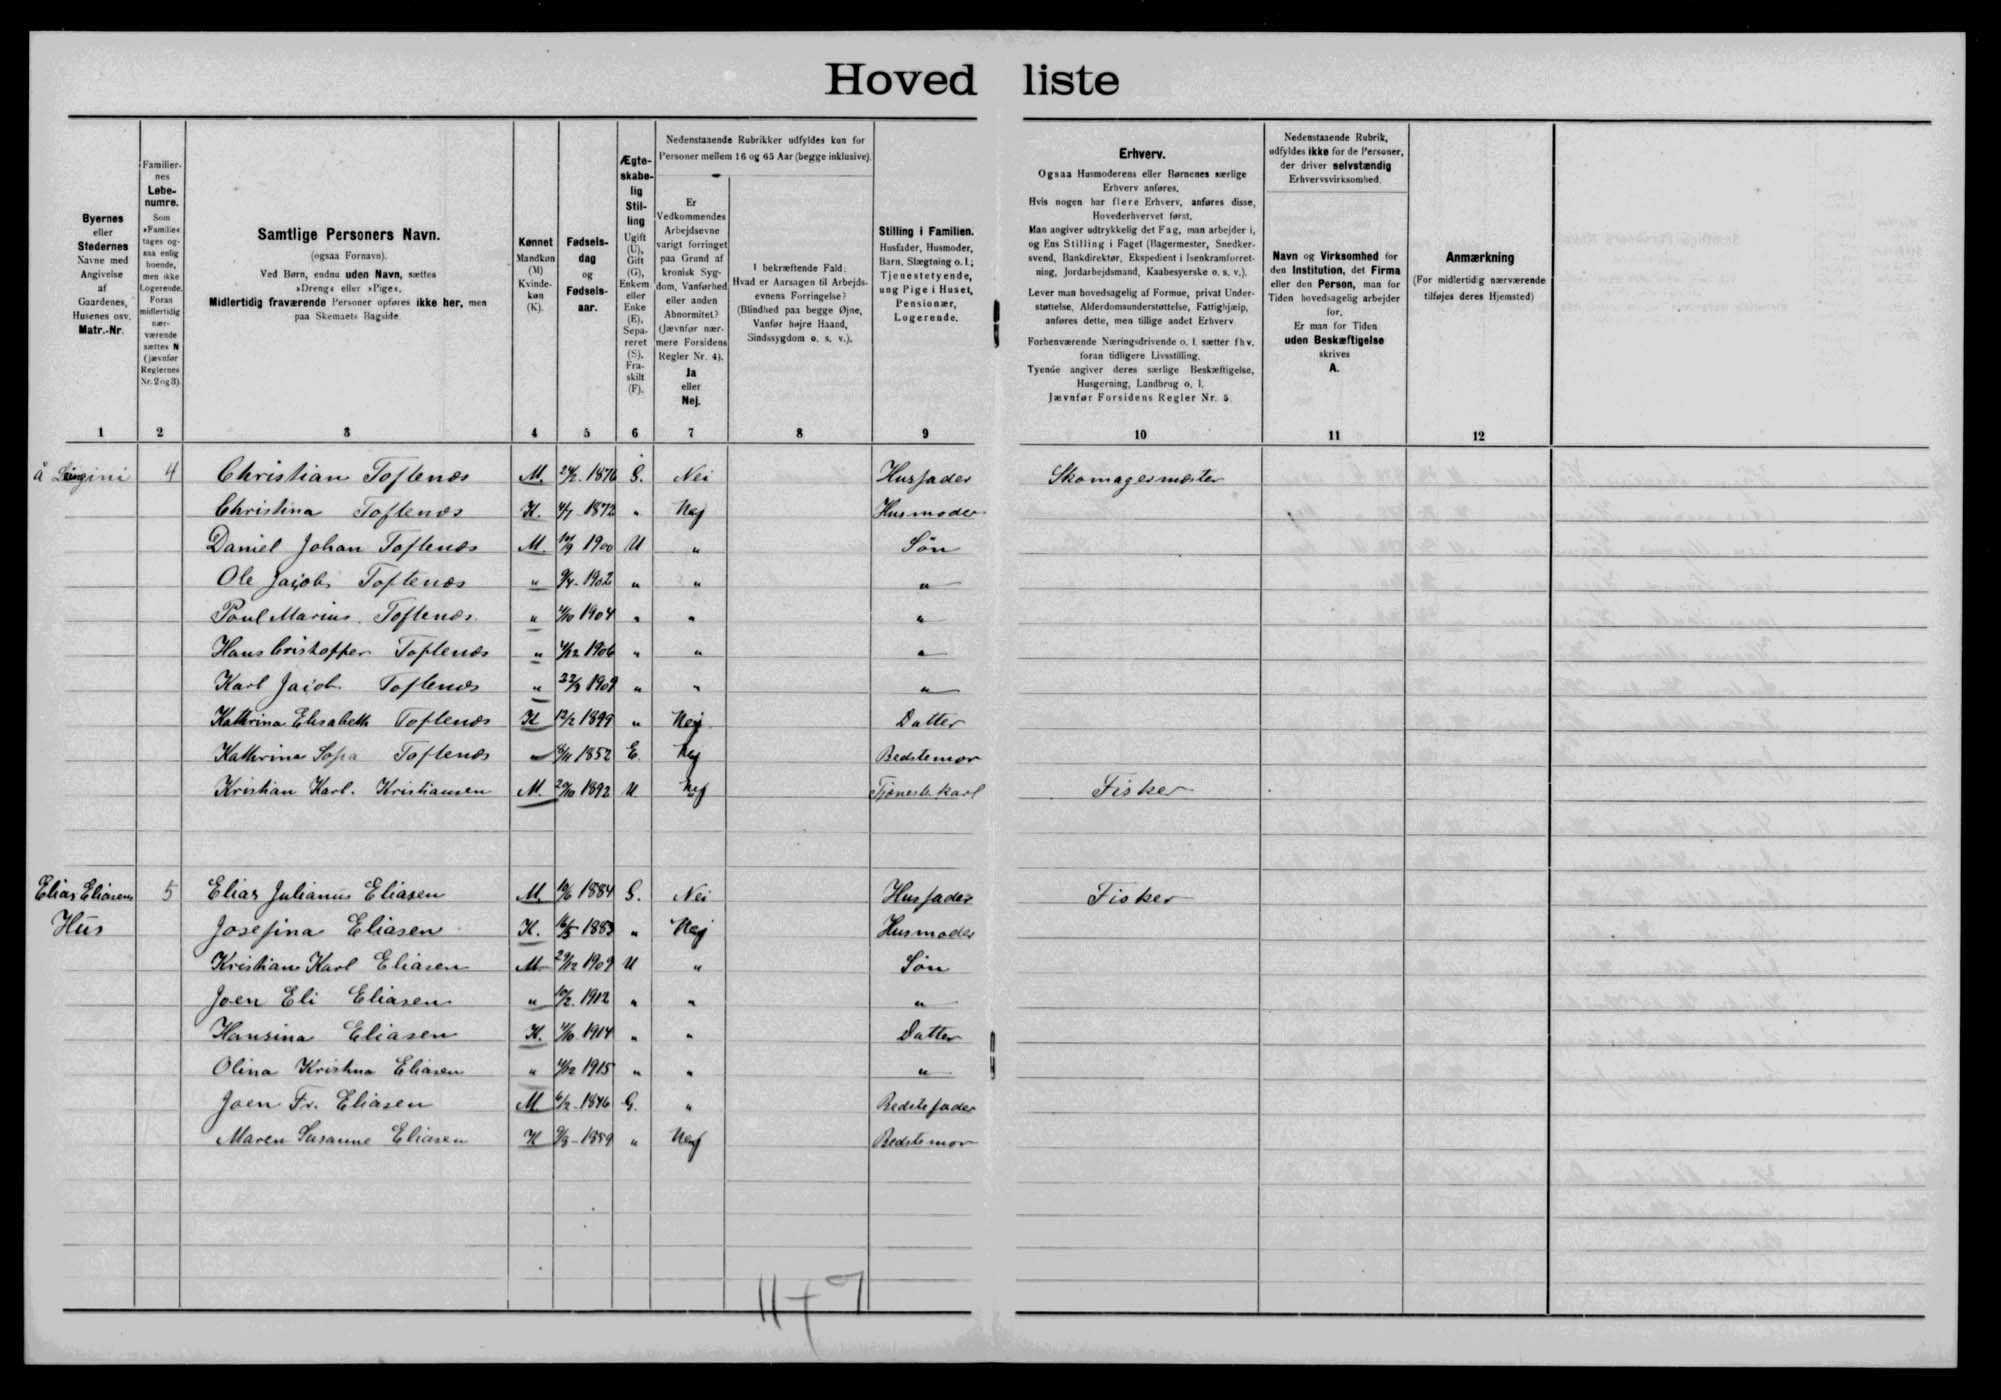 Hovedliste
Byernes
eller
Stedernes
Navne med
Angivelse
af
Gaardenes,
Husenes osv.
Matr.-Nr.
Familier-
nes
Løbe-
numre.
Som
»Familie«
tages og-
saa enlig
boende,
men ikke
Logerende.
Foran
midlertidig
nær-
værende
sættes N
(jævnfør
Reglernes
Nr. 2 og 3).
Samtlige Personers Navn.
(ogsaa Fornavn).
Ved Børn, endnu uden Navn, sættes
»Dreng« eller »Pige«.
Midlertidig fraværende Personer opføres ikke her, men
paa Skemaets Bagside.
Kønnet
Mandkøn
(M)
Kvinde-
køn
(K).
Fødsels-
dag
og
Fødsels-
aar.
Ægte-
skabe-
lig
Stil-
ling
Ugift
(U),
Gift
(G),
Enkem.
eller
Enke
(E),
Sepa-
reret
(S),
Fra-
skilt
(F).
Nedenstaaende Rubrikker udfyldes kun for
Personer mellem 16 og 65 Aar (begge inklusive).
Er
Vedkommendes
Arbejdsevne
varigt forringet
paa Grund af
kronisk Syg-
dom, Vanførhed
eller anden
Abnormitet?
(Jævnfør nær-
mere Forsidens
Regler Nr. 4).
Ja
eller
Nej.
I bekræftende Fald:
Hvad er Aarsagen til Arbejds-
evnens Forringelse?
(Blindhed paa begge Øjne,
Vanfør højre Haand,
Sindssygdom o. s. v.).
Stilling i Familien.
Husfader, Husmoder,
Barn, Slægtning o. l.;
Tjenestetyende,
ung Pige i Huset,
Pensionær,
Logerende.
Erhverv.
Ogsaa Husmoderens eller Børnenes særlige
Erhverv anføres.
Hvis nogen har flere Erhverv, anføres disse,
Hovederhvervet først.
Man angiver udtrykkelig det Fag, man arbejder i,
og Ens Stilling i Faget (Bagermester, Snedker-
svend, Bankdirektør, Ekspedient i Isenkramforret-
ning, Jordarbejdsmand, Kaabesyerske o. s. v.).
Lever man hovedsagelig af Formue, privat Under-
støttelse, Alderdomsunderstøttelse, Fattighjælp,
anføres dette, men tillige andet Erhverv
Forhenværende Næringsdrivende o. l. sætter fhv.
foran tidligere Livsstilling.
Tyende angiver deres særlige Beskæftigelse,
Husgerning, Landbrug o. l.
Jævnfør Forsidens Regler Nr. 5.
Nedenstaaende Rubrik,
udfyldes ikke for de Personer,
der driver selvstændig
Erhvervsvirksomhed.
Navn og Virksomhed for
den Institution, det Firma
eller den Person, man for
Tiden hovedsagelig arbejder
for.
Er man for Tiden
uden Beskæftigelse
skrives
A.
Anmærkning
(For midlertidig nærværende
tilføjes deres Hjemsted)
1 2 3 4 5 6 7 8 9 10 11 12
å 4 Christian Toftenæs M. 24/2 1876 G. Nei Husfader Skomagermester
Christina Toftenæs K. 4/7 1872 " Nej Husmoder
Daniel Johan Toftenæs M. 1900 U " Søn
Ole Jacob Toftenæs " 9/4 1902 " " "
Poul Marius Toftenæs " 1904 " " "
Hans Cristoffer Toftenæs " 1906 " " "
Karl Jacob Toftenæs " 1909 " " "
Kathrina Elisabeth Toftenæs K 12/2 1899 " Nej Datter
Kathrina Sofia Toftenæs " 8/11 1852 E. Nej Bedstemor
Kristian Karl. Kristiansen M. 1892 U Nej Tjenestekarl Fisker
Elias Eliasens 5 Elias Julianus Eliasen M. 1884 G. Nei Husfader Fisker
Hus Josefina Eliasen K. 16/5 1883 " Nej Husmoder
Kristian Karl Eliasen M 29/12 1909 U " Søn
Joen Eli Eliasen " 1912 " " "
Hansina Eliasen K. 1914 " " Datter
Olina Kristina Eliasen " 1915 " " "
Joen Fr. Eliasen M 6/2 1846 G. " Bedstefader
Maren Susanne Eliasen K 9/3 1859 " Nej Bedstemor
11 + 7